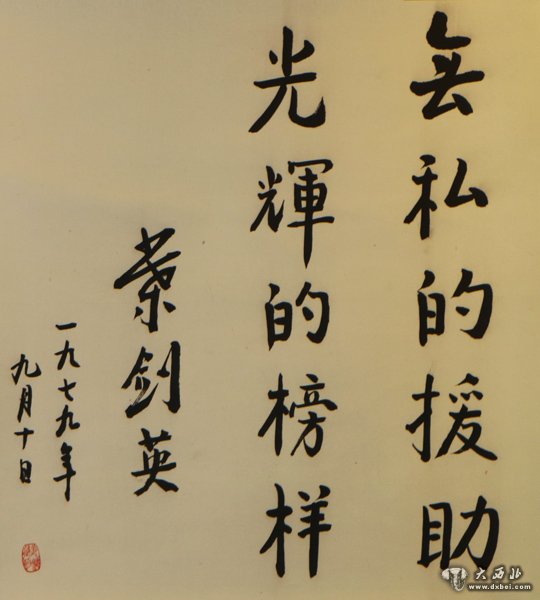 無私的援助
光輝的榜样
葉剑英
一九七九年
九月十日
大西北
www.dxbei.com